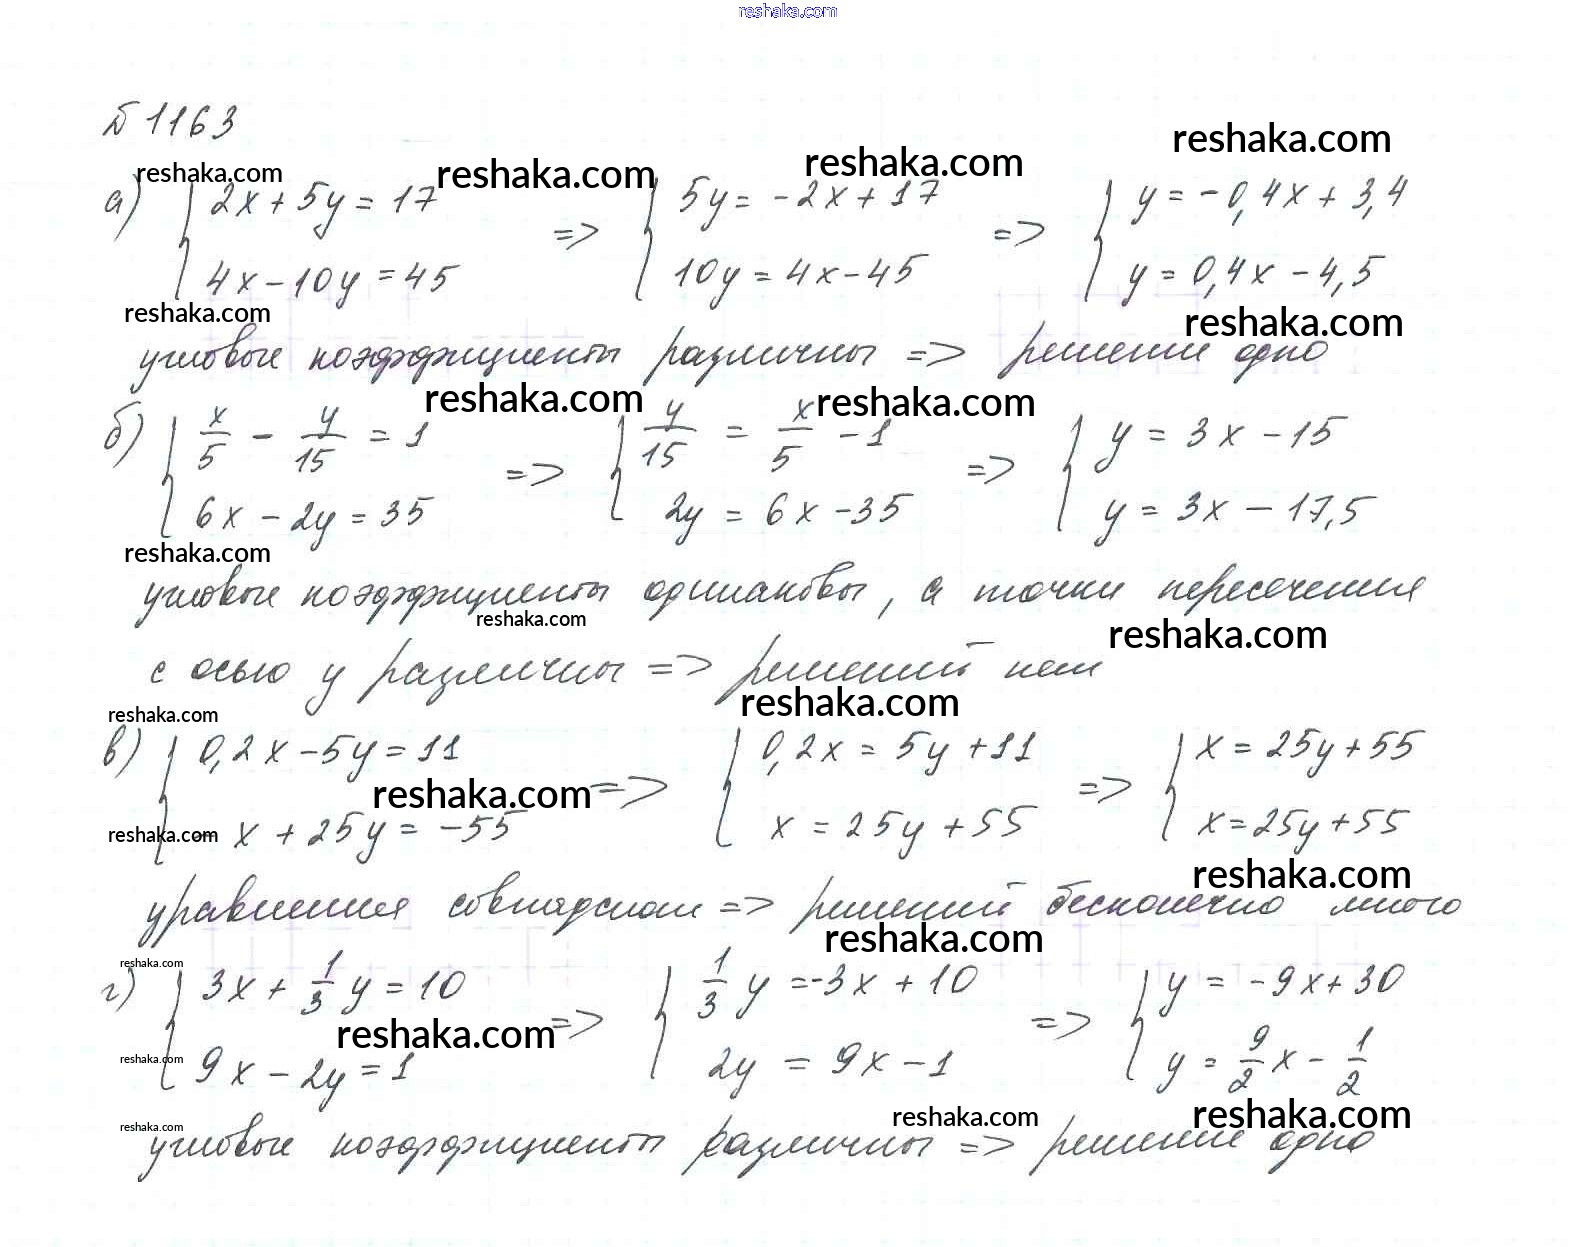 reshaka.com
№ 1163
reshaka.com reshaka.com reshaka.com reshaka.com
а) { 2x + 5y = 17 => { 5y = -2x + 17 => { y = -0,4x + 3,4
4x - 10y = 45 10y = 4x - 45 y = 0,4x - 4,5
reshaka.com reshaka.com
угловые коэффициенты различны => решение одно
reshaka.com reshaka.com
б) { x/5 - y/15 = 1 => { y/15 = x/5 - 1 => { y = 3x - 15
6x - 2y = 35 2y = 6x - 35 y = 3x - 17,5
reshaka.com
угловые коэффициенты одинаковы, а точки пересечения
reshaka.com reshaka.com
с осью y различны => решений нет
reshaka.com reshaka.com
в) { 0,2x - 5y = 11 => { 0,2x = 5y + 11 => { x = 25y + 55
reshaka.com
- x + 25y = -55 x = 25y + 55 x = 25y + 55
reshaka.com reshaka.com
уравнения совпадают => решений бесконечно много
reshaka.com reshaka.com
г) { 3x + 1/3 y = 10 => { 1/3 y = -3x + 10 => { y = -9x + 30
reshaka.com
9x - 2y = 1 2y = 9x - 1 y = 9/2 x - 1/2
reshaka.com reshaka.com reshaka.com reshaka.com
угловые коэффициенты различны => решение одно